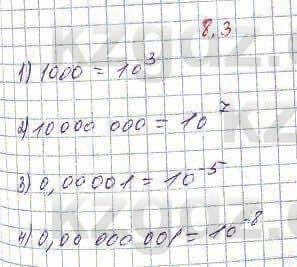 8,3
1) 1000 = 10³
2) 10000 000 = 10⁷
3) 0,00001 = 10⁻⁵
4) 0,00 000 001 = 10⁻⁸